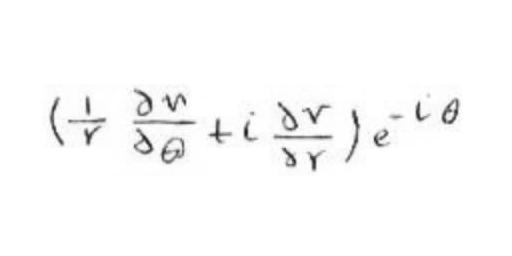 $\left( \frac{1}{r} \frac{\partial v}{\partial \theta} + i \frac{\partial v}{\partial r} \right) e^{-i\theta}$